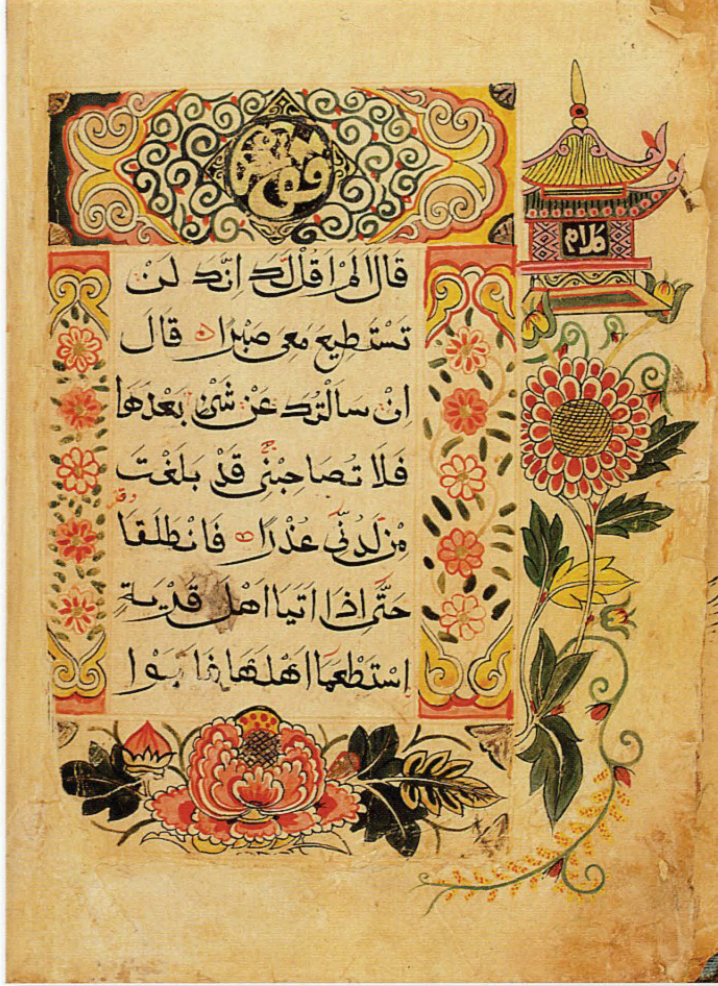 قَالَ اَلَمْ اَقُلْ لَكَ اِنَّكَ لَنْ
تَسْتَطِيعَ مَعِىَ صَبْرًا قَالَ
اِنْ سَاَلْتُكَ عَنْ شَىْءٍ بَعْدَهَا
فَلَا تُصَاحِبْنِى قَدْ بَلَغْتَ
مِنْ لَدُنِّى عُذْرًا فَانْطَلَقَا
حَتّٰى اِذَا اَتَيَا اَهْلَ قَرْيَةٍ
اِسْتَطْعَمَا اَهْلَهَا فَاَبَوْا
كلام